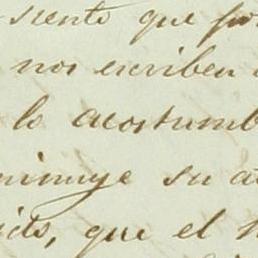 siento que por
nos escriben
lo acostumb
minuye su a
ido, que el